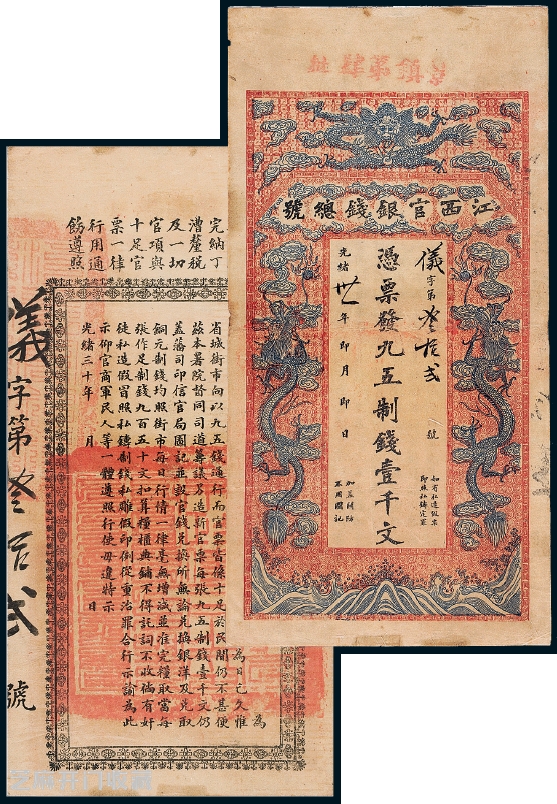 江西官銀錢總號
儀字第叁佰貳號
憑票發九五制錢壹千文
光緒卅年即月即日
如有私造假票
即照私鑄定罪
加蓋關防
不用圖記
完納丁
漕釐稅
及一切
官項與
十足官
票一律
行用通
飭遵照
為
省城街市向以九五錢通行而官票當條十足於民間仍不甚便
為日已久惟
茲本署院督同司道籌議另造新官票每張九五制錢壹千文仍
蓋藩司印信官局圖記並設官錢兌換所無論兌換銀洋及兌取
銅元制錢均照街市每日行情一律毫無增減並准完糧取當每
張作足制錢九百五十文扣算糧櫃典鋪不得託詞不收倘有奸
徒私造假冒照私鑄制錢私雕假印例從重治罪合行示諭為此
示仰官商軍民人等一體遵照行使毋違特示
光緒三十年 月 日
儀字第叁佰貳號